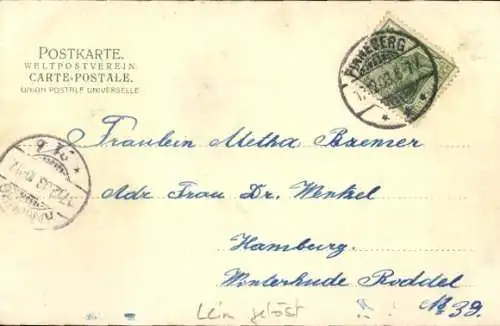 POSTKARTE.
WELTPOSTVEREIN.
CARTE-POSTALE.
UNION POSTALE UNIVERSELLE
PINNEBERG
Fräulein Metha Bremer
Adr Frau Dr. Wenkel
Hamburg.
Winterhude Roddel
No 39.
Leim gelöst